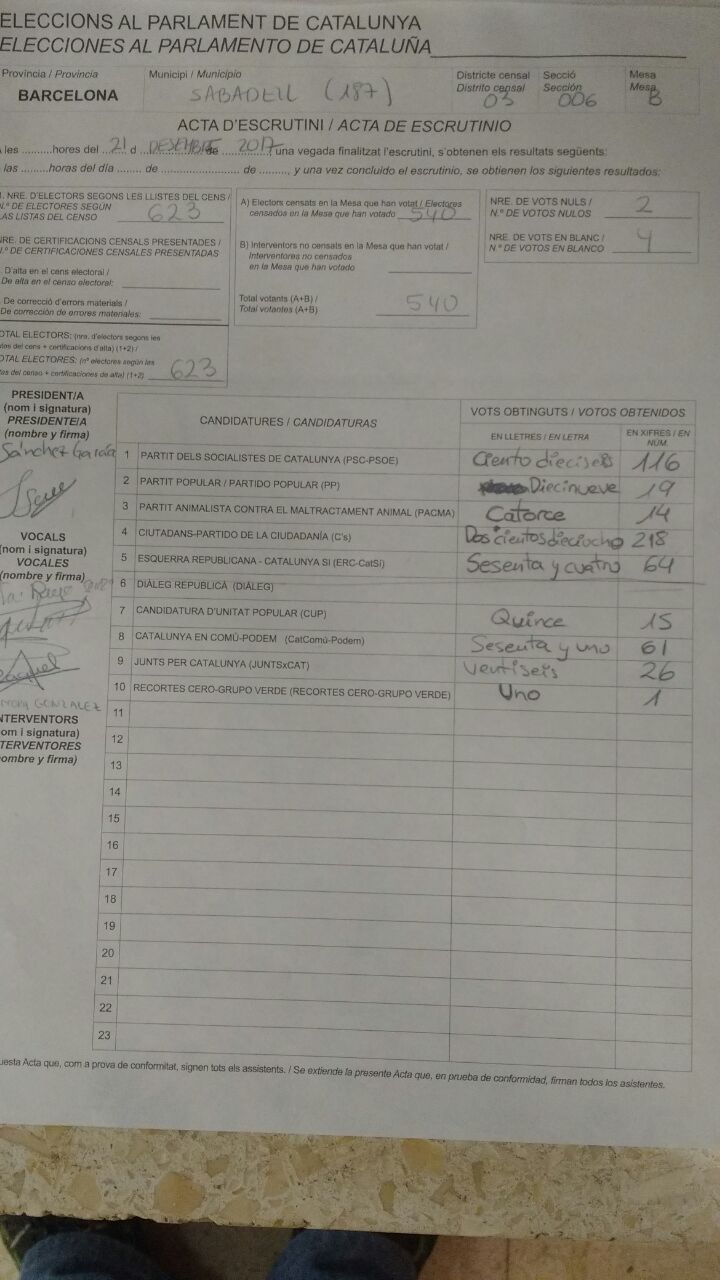 ELECCIONS AL PARLAMENT DE CATALUNYA
ELECCIONES AL PARLAMENTO DE CATALUÑA
Província / Provincia
BARCELONA
Municipi / Municipio
SABADELL (187)
Districte censal
Distrito censal
03
Secció
Sección
006
Mesa
Mesa
B
ACTA D'ESCRUTINI / ACTA DE ESCRUTINIO
les .........hores del 21 d DESEMBRE de 2017, una vegada finalitzat l'escrutini, s'obtenen els resultats següents:
las .........horas del día ........ de ........................ de ........, y una vez concluido el escrutinio, se obtienen los siguientes resultados:
NRE. D'ELECTORS SEGONS LES LLISTES DEL CENS /
N.º DE ELECTORES SEGÚN
LAS LISTAS DEL CENSO 623
NRE. DE CERTIFICACIONS CENSALS PRESENTADES /
N.º DE CERTIFICACIONES CENSALES PRESENTADAS
D'alta en el cens electoral /
De alta en el censo electoral:
De correcció d'errors materials /
De corrección de errores materiales:
TOTAL ELECTORS: (nra. d'electors segons les
llistes del cens + certificacions d'alta) (1+2) /
TOTAL ELECTORES: (nº electores según las
listas del censo + certificaciones de alta) (1+2) 623
A) Electors censats en la Mesa que han votat / Electores
censados en la Mesa que han votado 540
B) Interventors no censats en la Mesa que han votat /
Interventores no censados
en la Mesa que han votado
Total votants (A+B) /
Total votantes (A+B) 540
NRE. DE VOTS NULS /
N.º DE VOTOS NULOS 2
NRE. DE VOTS EN BLANC /
N.º DE VOTOS EN BLANCO 4
PRESIDENT/A
(nom i signatura)
PRESIDENTE/A
(nombre y firma)
Sánchez García
VOCALS
(nom i signatura)
VOCALES
(nombre y firma)
GONZALEZ
INTERVENTORS
(nom i signatura)
INTERVENTORES
(nombre y firma)
CANDIDATURES / CANDIDATURAS
VOTS OBTINGUTS / VOTOS OBTENIDOS
EN LLETRES / EN LETRA
EN XIFRES / EN NÚM.
1 PARTIT DELS SOCIALISTES DE CATALUNYA (PSC-PSOE) Ciento dieciseis 116
2 PARTIT POPULAR / PARTIDO POPULAR (PP) Diecinueve 19
3 PARTIT ANIMALISTA CONTRA EL MALTRACTAMENT ANIMAL (PACMA) Catorce 14
4 CIUTADANS-PARTIDO DE LA CIUDADANÍA (C's) Doscientos dieciocho 218
5 ESQUERRA REPUBLICANA - CATALUNYA SI (ERC-CatSí) Sesenta y cuatro 64
6 DIÀLEG REPUBLICÀ (DIÀLEG)
7 CANDIDATURA D'UNITAT POPULAR (CUP) Quince 15
8 CATALUNYA EN COMÚ-PODEM (CatComú-Podem) Sesenta y uno 61
9 JUNTS PER CATALUNYA (JUNTSxCAT) Ventiseis 26
10 RECORTES CERO-GRUPO VERDE (RECORTES CERO-GRUPO VERDE) Uno 1
11
12
13
14
15
16
17
18
19
20
21
22
23
questa Acta que, com a prova de conformitat, signen tots els assistents. / Se extiende la presente Acta que, en prueba de conformidad, firman todos los asistentes.